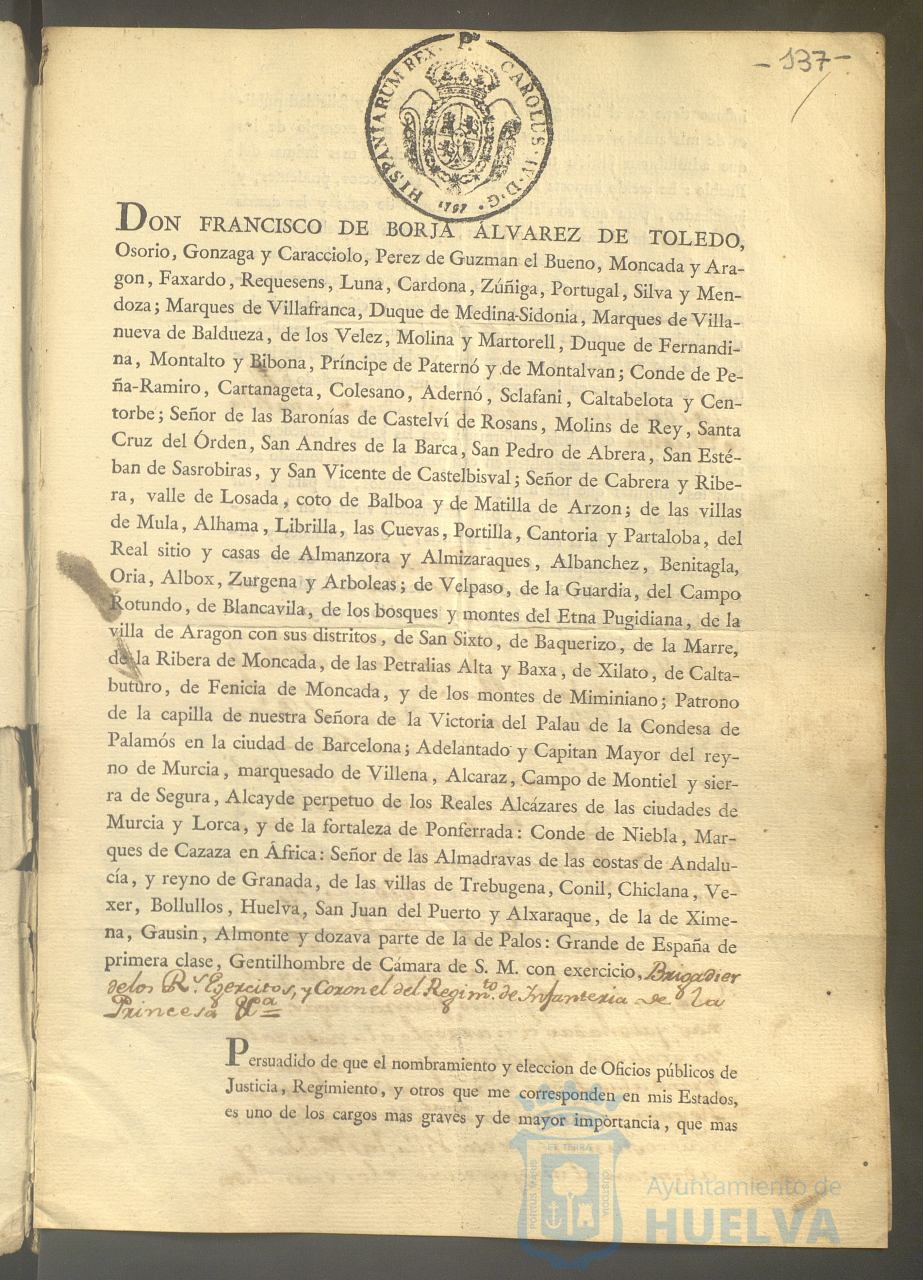 -137-
HISPANIARUM REX. P. CAROLUS. IV. D. G. 1797
DON FRANCISCO DE BORJA ÁLVAREZ DE TOLEDO,
Osorio, Gonzaga y Caracciolo, Perez de Guzman el Bueno, Moncada y Ara-
gon, Faxardo, Requesens, Luna, Cardona, Zúñiga, Portugal, Silva y Men-
doza; Marques de Villafranca, Duque de Medina-Sidonia, Marques de Villa-
nueva de Baldueza, de los Velez, Molina y Martorell, Duque de Fernandi-
na, Montalto y Bibona, Príncipe de Paternó y de Montalvan; Conde de Pe-
ña-Ramiro, Cartanageta, Colesano, Adernó, Sclafani, Caltabelota y Cen-
torbe; Señor de las Baronías de Castelví de Rosans, Molins de Rey, Santa
Cruz del Órden, San Andres de la Barca, San Pedro de Abrera, San Esté-
ban de Sasrobiras, y San Vicente de Castelbisval; Señor de Cabrera y Ribe-
ra, valle de Losada, coto de Balboa y de Matilla de Arzon; de las villas
de Mula, Alhama, Librilla, las Cuevas, Portilla, Cantoria y Partaloba, del
Real sitio y casas de Almanzora y Almizaraques, Albanchez, Benitagla,
Oria, Albox, Zurgena y Arboleas; de Velpaso, de la Guardia, del Campo
Rotundo, de Blancavila, de los bosques y montes del Etna Pugidiana, de la
villa de Aragon con sus distritos, de San Sixto, de Baquerizo, de la Marre,
de la Ribera de Moncada, de las Petralias Alta y Baxa, de Xilato, de Calta-
buturo, de Fenicia de Moncada, y de los montes de Miminiano; Patrono
de la capilla de nuestra Señora de la Victoria del Palau de la Condesa de
Palamós en la ciudad de Barcelona; Adelantado y Capitan Mayor del rey-
no de Murcia, marquesado de Villena, Alcaraz, Campo de Montiel y sier-
ra de Segura, Alcayde perpetuo de los Reales Alcázares de las ciudades de
Murcia y Lorca, y de la fortaleza de Ponferrada: Conde de Niebla, Mar-
ques de Cazaza en África: Señor de las Almadravas de las costas de Andalu-
cía, y reyno de Granada, de las villas de Trebugena, Conil, Chiclana, Ve-
xer, Bollullos, Huelva, San Juan del Puerto y Alxaraque, de la de Xime-
na, Gausin, Almonte y dozava parte de la de Palos: Grande de España de
primera clase, Gentilhombre de Cámara de S. M. con exercicio, Brigadier
delos R.s Egercitos, y Coronel del Regim.to de Infanteria de la
Princesa &.a
Persuadido de que el nombramiento y eleccion de Oficios públicos de
Justicia, Regimiento, y otros que me corresponden en mis Estados,
es uno de los cargos mas graves y de mayor importancia, que mas
PORTUS MARIS ET TERRAE CUSTODIA
Ayuntamiento de
HUELVA